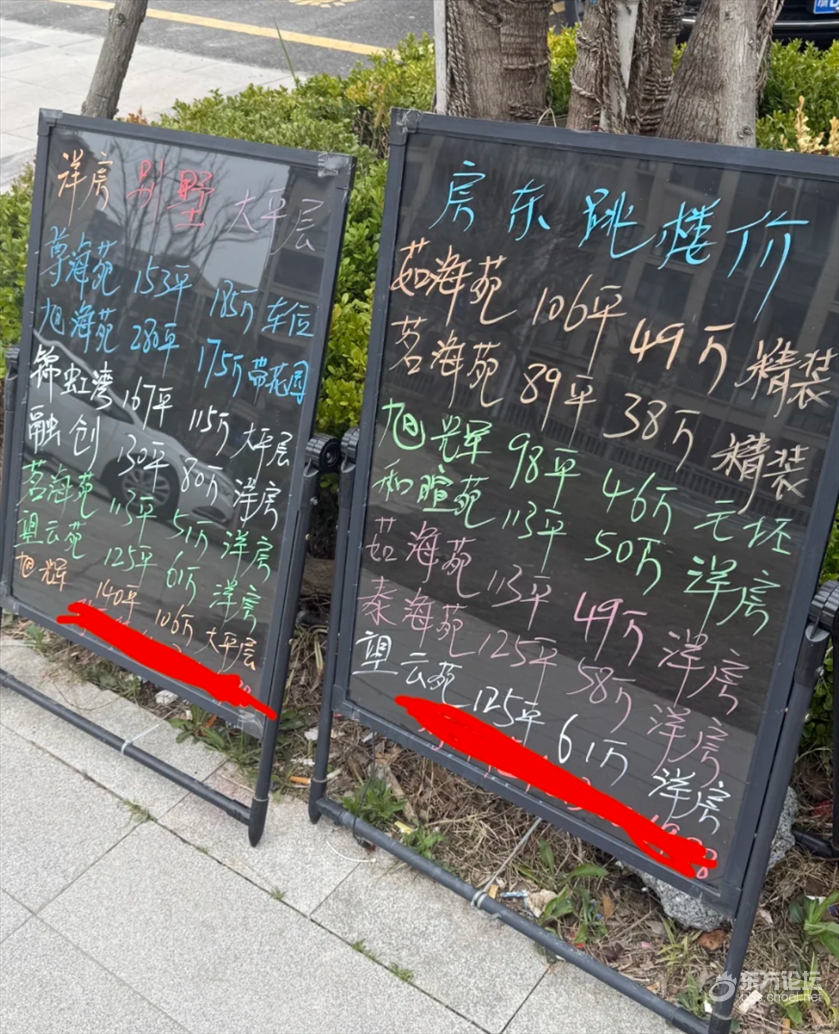 洋房 别墅 大平层
尊海苑 153平 185万 车位
旭海苑 280平 175万 带花园
锦虹湾 167平 115万 大平层
融创 130平 80万 洋房
茗海苑 113平 51万 洋房
望云苑 125平 61万 洋房
旭辉 140平 106万 大平层
房东跳楼价
茹海苑 106平 49万 精装
茗海苑 89平 38万 精装
旭辉 98平 46万 毛坯
和暄苑 113平 50万 洋房
茹海苑 113平 49万 洋房
泰海苑 125平 58万 洋房
望云苑 125平 61万 洋房
东方论坛
bbs.cnool.net